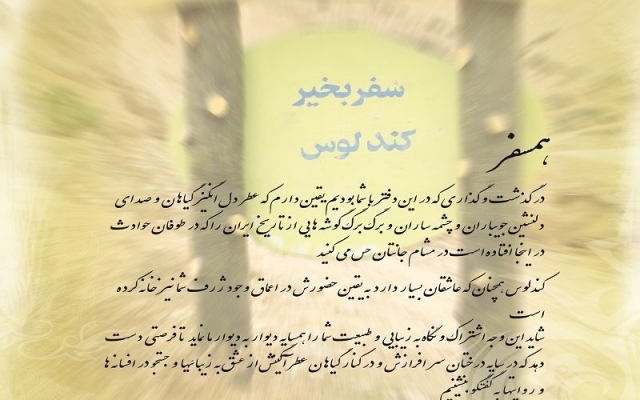 سفر بخیر
کندلوس
همسفر
در گذشت و گذاری که در این دفتر با شما بودیم یقین دارم که عطر دل انگیز گیاهان و صدای
دلنشین جویباران و چشمه ساران و برگ برگ گوشه هایی از تاریخ ایران را که در طوفان حوادث
در اینجا افتاده است در مشام جانتان حس می کنید
کندلوس همچنان که عاشقان بسیار دارد به یقین حضورش در اعماق وجود ژرف شما نیز خانه کرده
است
شاید این وجه اشتراک و نگاه به زیبایی و طبیعت شما را همسایه دیوار به دیوار ما نماید تا فرصتی دست
دهد که در سایه درختان سرافرازش و در کنار گیاهان عطرآگینش از عشق به زیبائیها و جستجو در افسانه ها
و روایتها به گفتگو بنشینیم